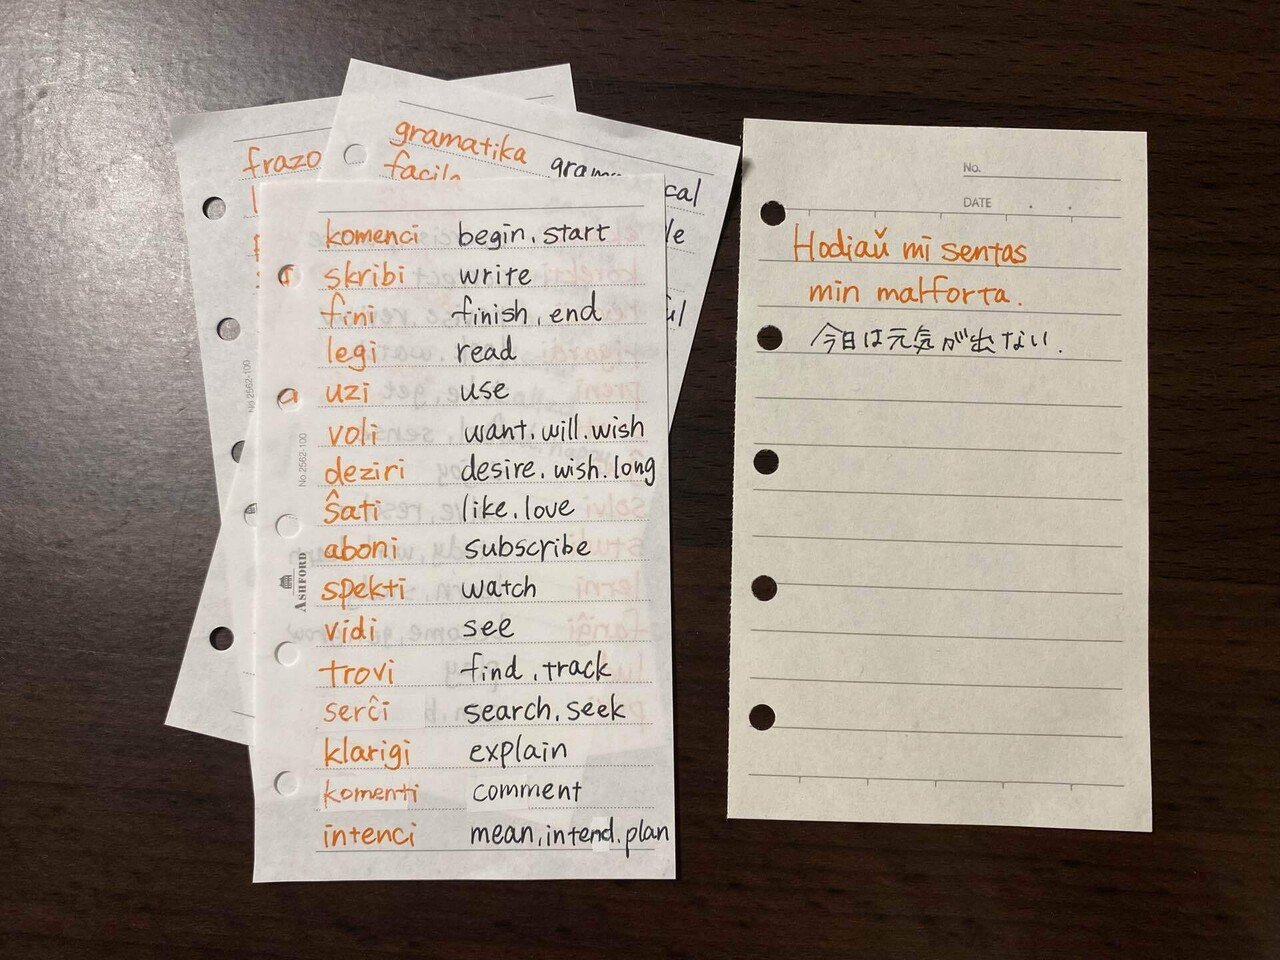 frazo
gramatika gram
facila cal
komenci begin, start
skribi write
fini finish, end
legi read
uzi use
voli want, will, wish
deziri desire, wish, long
ŝati like, love
aboni subscribe
spekti watch
vidi see
trovi find, track
serĉi search, seek
klarigi explain
komenti comment
intenci mean, intend, plan
No.2562-100
No.2562-100
ASHFORD
No.
DATE . .
Hodiaŭ mi sentas
min malforta.
今日は元気が出ない.